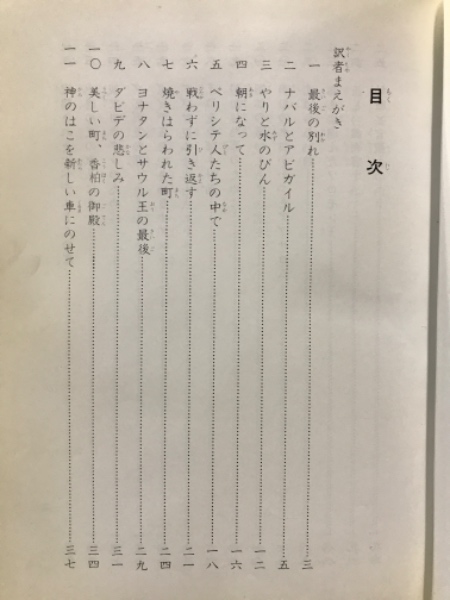 目次
訳者まえがき
一 最後の別れ……三
二 ナバルとアビガイル……五
三 やりと水のびん……一二
四 朝になって……一六
五 ペリシテ人たちの中で……一八
六 戦わずに引き返す……二一
七 焼きはらわれた町……二四
八 ヨナタンとサウル王の最後……二九
九 ダビデの悲しみ……三一
一〇 美しい町、香柏の御殿……三四
一一 神のはこを新しい車にのせて……三七